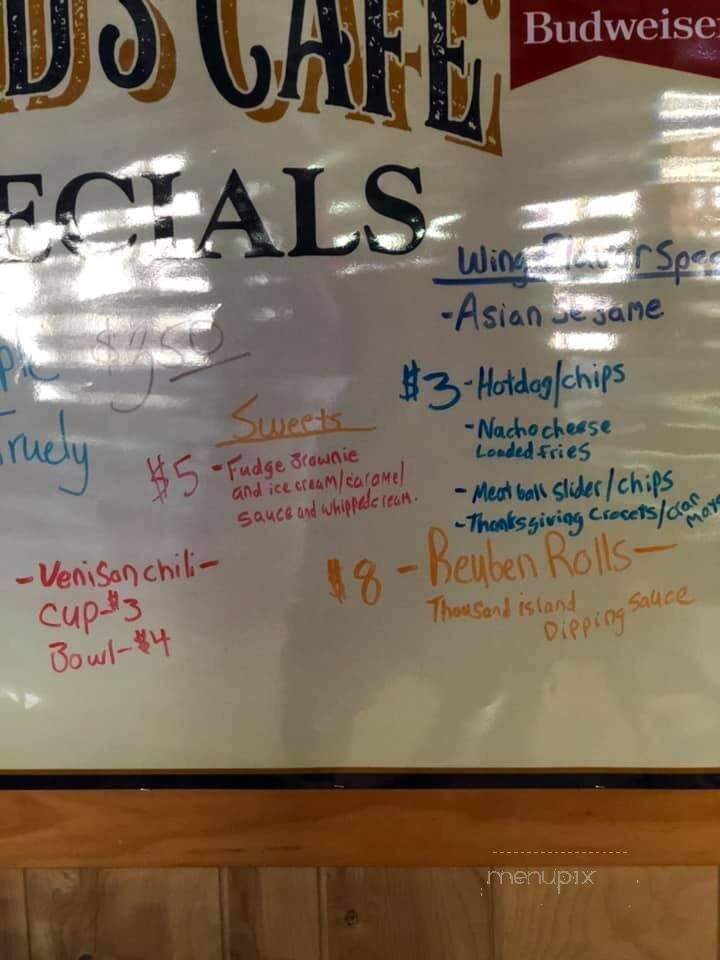 DS CAFE
Budweiser
ECIALS
Wing Flavor Spec
-Asian Sesame
$3-Hotdog/chips
-Nacho cheese
Loaded Fries
-Meat ball slider/chips
-Thanksgiving Crocets/cran
Truely
Sweets
$5-Fudge Brownie
and ice cream/caramel
sauce and whipped cream.
-Venison chili-
Cup-$3
Bowl-$4
$8-Reuben Rolls-
Thousand island
Dipping Sauce
menupix